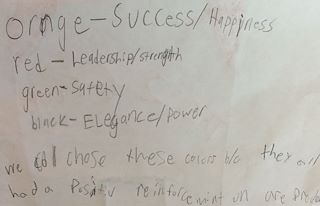 ornge-Success/Happiness
red-Leadership/strength
green-Safety
black-Elegance/Power
we all chose these colors b/c they all
had a Positiv reinforcemint un are